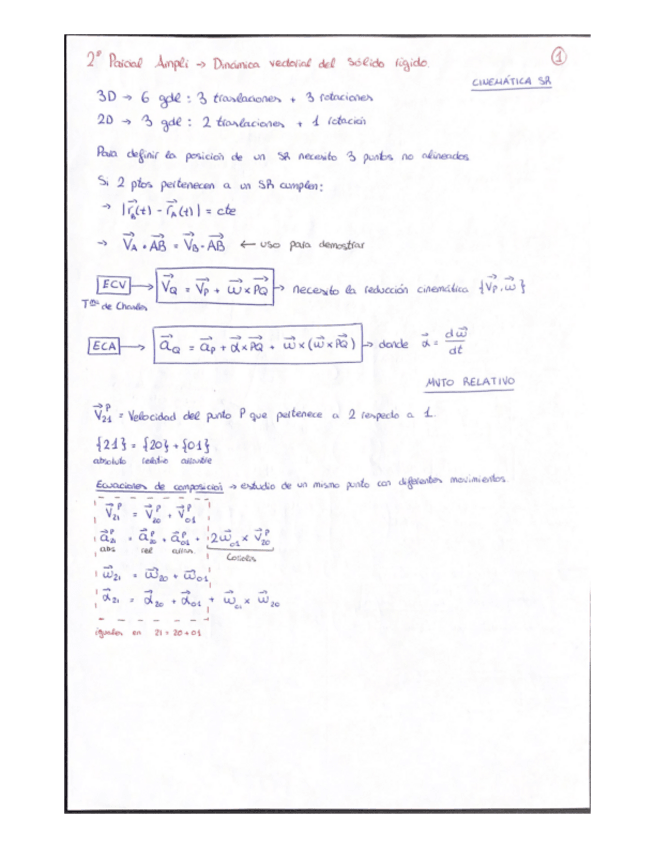 2º Parcial Ampli → Dinámica vectorial del sólido rígido.
1
CINEMÁTICA SR
3D → 6 gdl : 3 traslaciones + 3 rotaciones
2D → 3 gdl : 2 traslaciones + 1 rotación
Para definir la posición de un SR necesito 3 puntos no alineados
Si 2 ptos pertenecen a un SR cumplen:
→ |r⃗_B(t) - r⃗_A(t)| = cte
→ V⃗_A · AB⃗ = V⃗_B · AB⃗ ← uso para demostrar
ECV → V⃗_Q = V⃗_P + ω⃗ × PQ⃗ → necesito la reducción cinemática {V⃗_P, ω⃗}
Tma de Chasles
ECA → a⃗_Q = a⃗_P + α⃗ × PQ⃗ + ω⃗ × (ω⃗ × PQ⃗) → donde α⃗ = dω⃗/dt
MVTO RELATIVO
V⃗_21^P = Velocidad del punto P que pertenece a 2 respecto a 1
{21} = {20} + {01}
absoluto relativo arrastre
Ecuaciones de composición → estudio de un mismo punto con diferentes movimientos.
V⃗_21^P = V⃗_20^P + V⃗_01^P
a⃗_21^P = a⃗_20^P + a⃗_01^P + 2ω⃗_01 × V⃗_20^P
abs rel arras. Coriolis
ω⃗_21 = ω⃗_20 + ω⃗_01
α⃗_21 = α⃗_20 + α⃗_01 + ω⃗_01 × ω⃗_20
iguales en 21 = 20 + 01